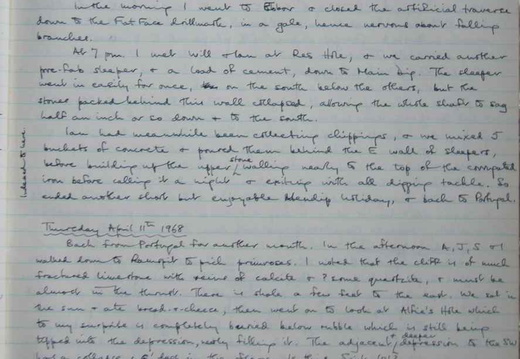 In the morning I went to Eabor & closed the artificial traverse
down to the Fat Face drillmark, in a gale, hence nervous about falling
branches.
At 7 pm I met Will & Iam at Res Hole, & we carried another
pre-fab sleeper, & a load of cement, down to Main Dip. The sleeper
went in easily for once, on the south below the others, but the
stones packed behind this wall collapsed, allowing the whole shaft to sag
half an inch or so down & to the south.
Iam had meanwhile been collecting chippings, & we mixed 5
buckets of concrete & poured them behind the E wall of sleepers,
before building up the upper stone walling nearly to the top of the corrugated
iron before calling it a night & exiting with all digging tackle. So
ended another short but enjoyable Mendip holiday, & back to Portugal.
Thursday April 11th 1968
Back from Portugal for another month. In the afternoon A, J, S & I
walked down to Ramspit to pick primroses. I noted that the cliff is of much
fractured limestone with veins of calcite & ? some quartzite, & must be
almost in the thrust. There is shale a few feet to the east. We sat in
the sun & ate bread & cheese, then went on to look at Alfie's Hole which
to my surprise is completely buried below rubble which is still being
tipped into the depression, nearly filling it. The adjacent deeper depression to the SW